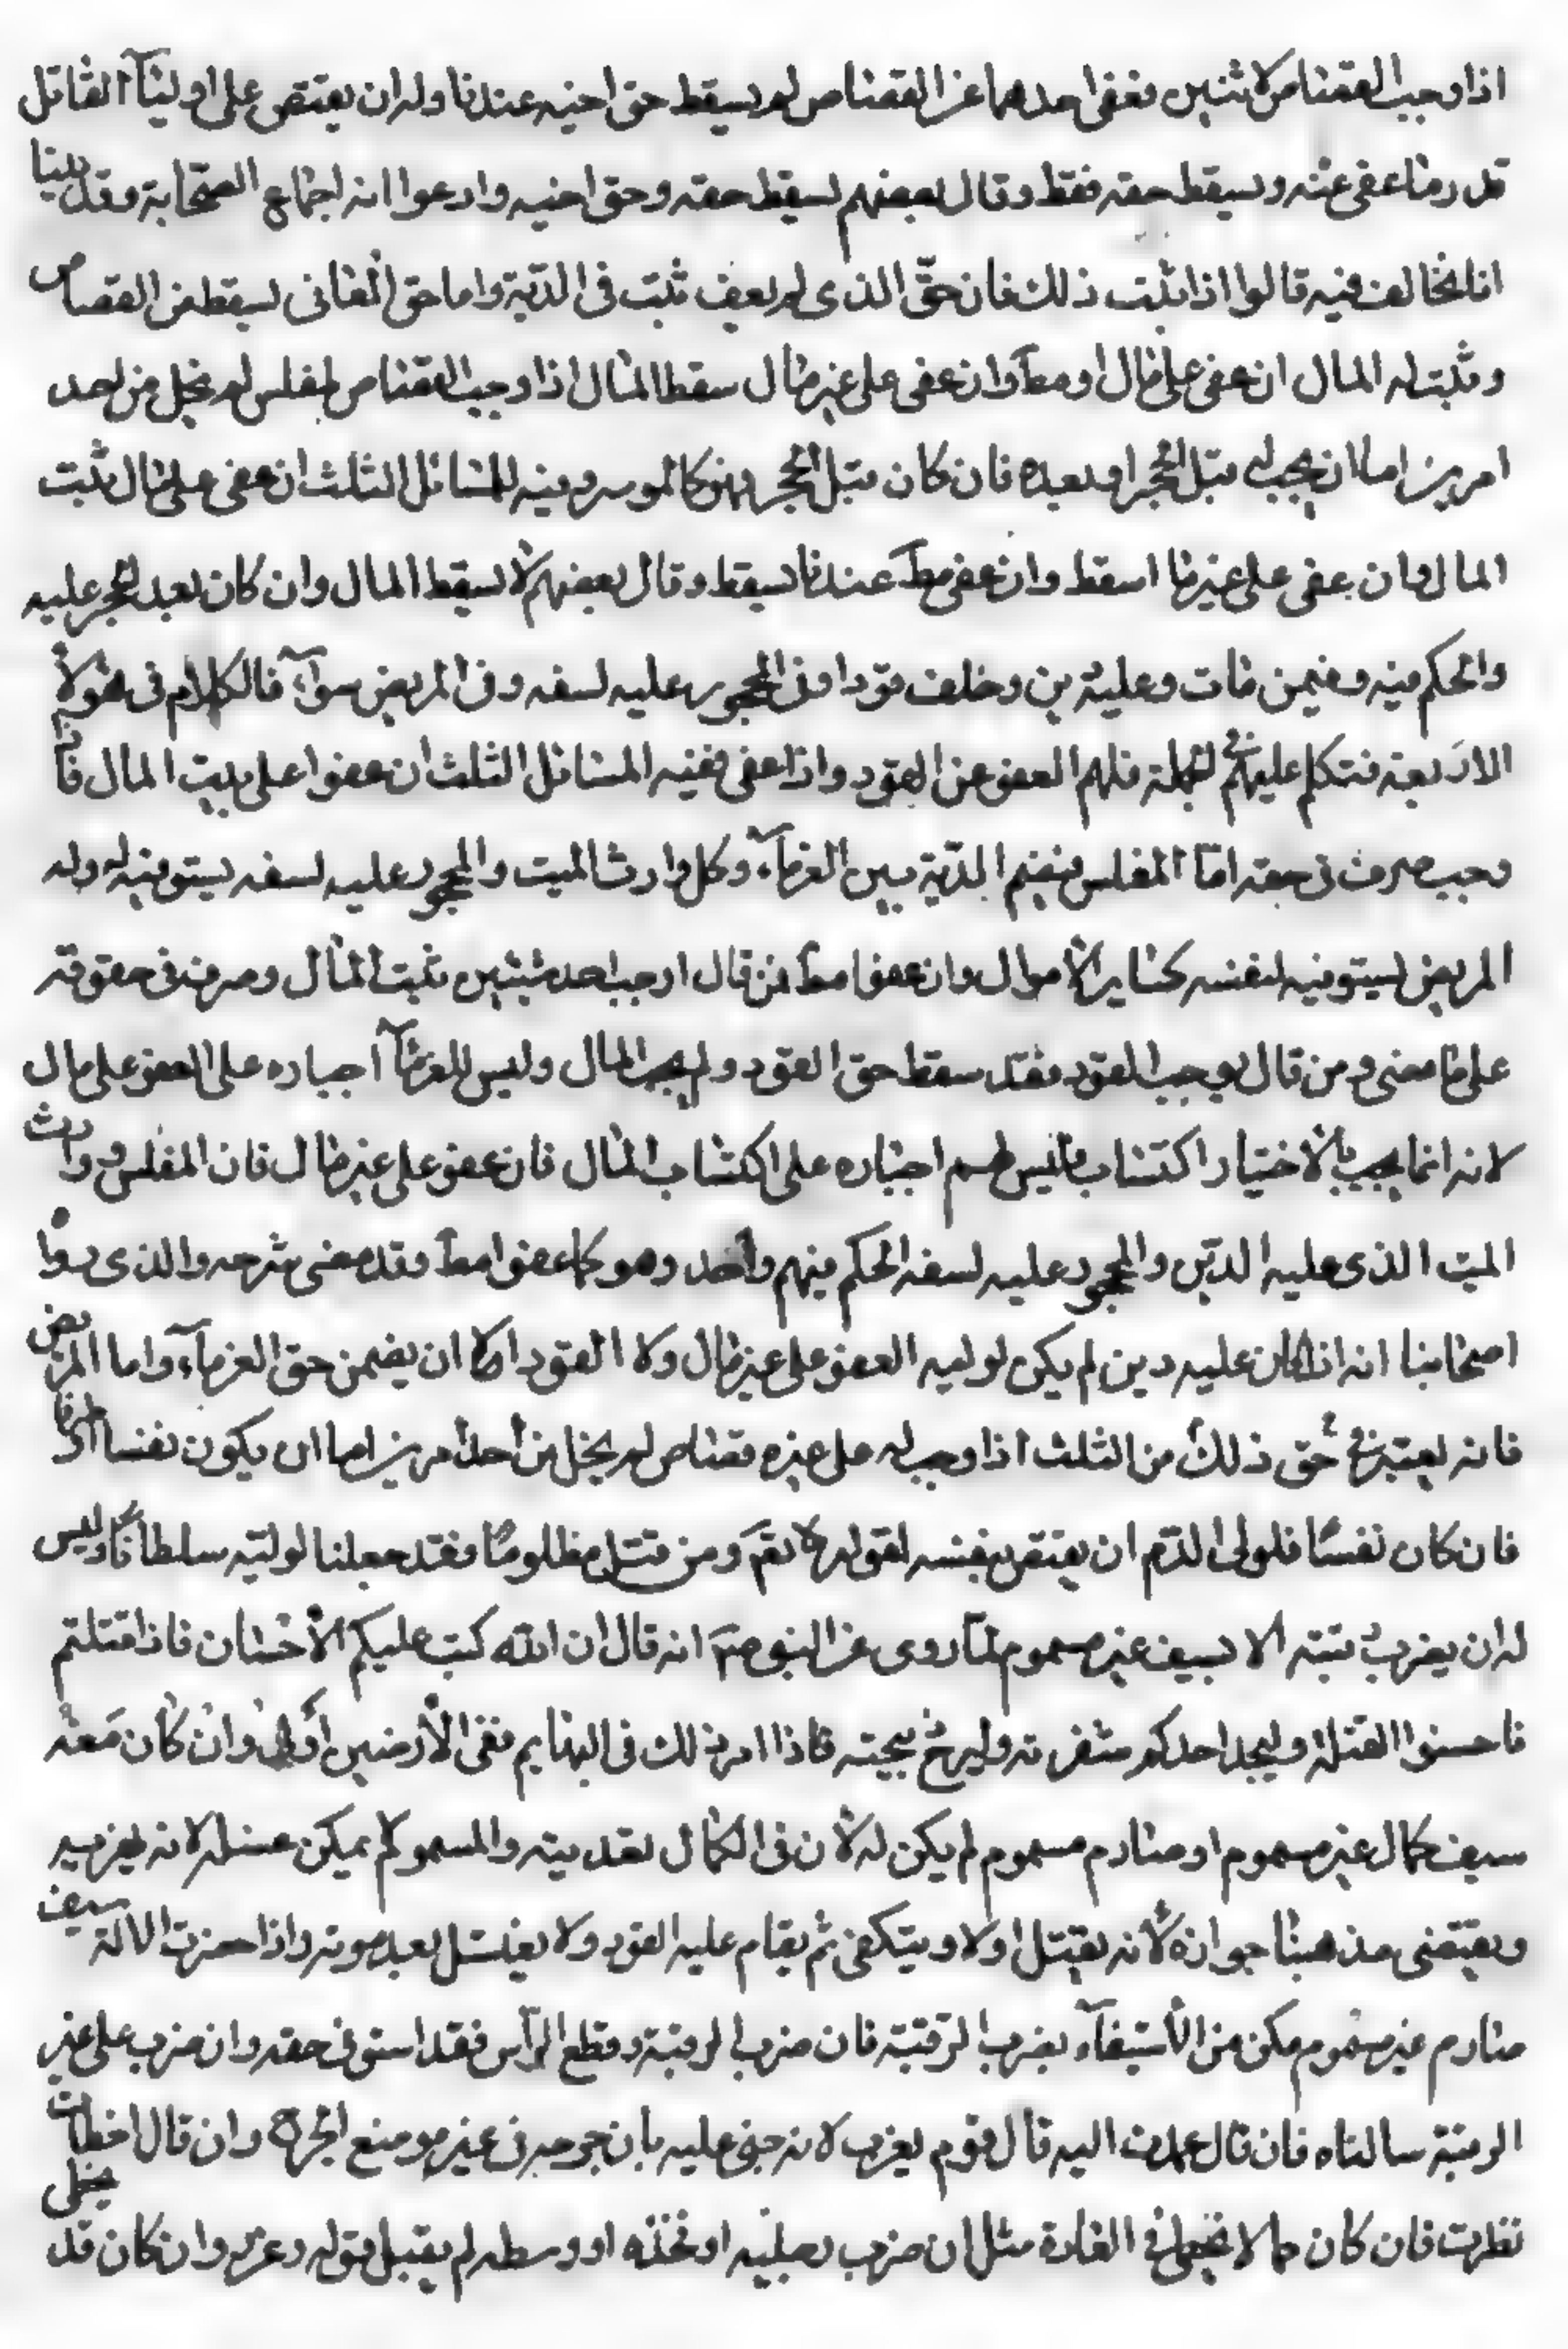 اذا وجب القصاص لاثنين فعفى احدهما عن القصاص لم يسقط حق اخيه عندنا وله ان يقتص على اوليآء القاتل
قدر ما عفى عنه ويسقط حقه فقط وقال بعضهم يسقط حقه وحق اخيه وادعوا انه اجماع الصحابة وقد بينا
انا نخالف فيه قالوا اذا ثبت ذلك فان حق الذى لم يعف ثبت فى الدية واما حق العافى يسقط من القصاص
وثبت له المال ان عفى على مال او مط وان عفى على غير مال سقط المال اذا وجب القصاص لمفلس لم يخل من احد
امرين اما ان يجب له قبل الحجر او بعده فان كان قبل الحجر فهو كالموسر وفيه المسائل الثلث ان عفى على مال ثبت
المال وان عفى على غير ما اسقط وان عفى مط عندنا يسقط وقال بعضهم لا يسقط المال وان كان بعد الحجر عليه
والحكم فيه وفيمن مات وعليه دين وخلف قودا وفى المحجور عليه لسفه وفى المريض سوآء فالكلام فى هؤلاء
الاربعة فنتكلم عليهم لجملة فلهم العفو عن القود واذا عفى ففيه المسائل الثلث ان عفوا على بيت المال فانه
وجب صرف فى حقه امّا المفلس فيقسم الدية بين الغرمآء وكل وارث الميت والمحجور عليه لسفه يستوفيه له وله
المريض يستوفيه لنفسه كساير الاموال وان عفوا مط فمن قال اوجب احد شيئين ثبت المال وصرف فى حقوقه
على ما مضى ومن قال يوجب القود فقد سقط حق القود ولم يجب المال وليس للغرمآء اجباره على العفو على مال
لانه انما يجب بالاختيار اكتساب فليس لهم اجباره على اكتساب المال فان عفو على غير مال فان المفلس ووارث
الميت الذى عليه الدّين والمحجور عليه لسفه الحكم فيهم واحد وهو كما عفوا مط وقد مضى شرحه والذى رواه
اصحابنا انه اذا كان عليه دين لم يكن لوليه العفو على غير مال ولا القود الا ان يضمن حق الغرمآء واما المريض
فانه يعتبر فى حق ذلك من الثلث اذا وجب له على غيره قصاص لم يخل من احد امرين اما ان يكون نفسا او طرفا
فان كان نفسًا فلولى الدّم ان يقتص بنفسه لقوله تعم ومن قتل مظلومًا فقد جعلنا لوليّه سلطاناً وليس
له ان يضرب رقبته الا بسيف غير مسموم لما روى عن النبى صم انه قال ان الله كتب عليكم الاحسان فاذا قتلتم
فاحسنوا القتلة وليجد احدكم شفرته وليرح ذبيحته فاذا امر ذلك فى البهايم ففى الآدميين اولى وان كان معه
سيف كال غير مسموم او صارم مسموم لم يكن له لان فى الكال تعذيبه والمسموم لم يمكن غسله لانه يهربه
ويقتضى مذهبنا جوازه لانه يغتسل اولا ويتكفن ثم يقام عليه القود ولا يغتسل بعد موته واذا حضرت الالة سيف
صارم غير مسموم مكن من الاستيفآء بضرب الرقبة فان ضرب الرقبة وقطع الرأس فقد استوفى حقه وان ضرب على غير
الرقبة سالناه فان قال عمدت اليه قال قوم يعزر لانه جنى عليه بان جرحه فى غير موضع الجرح وان قال اخطات
نظرت فان كان مما لا يخطى فى العادة مثل ان ضرب رجليه او فخذه او وسطه لم يقبل قوله وعزر وان كان قد يخطى